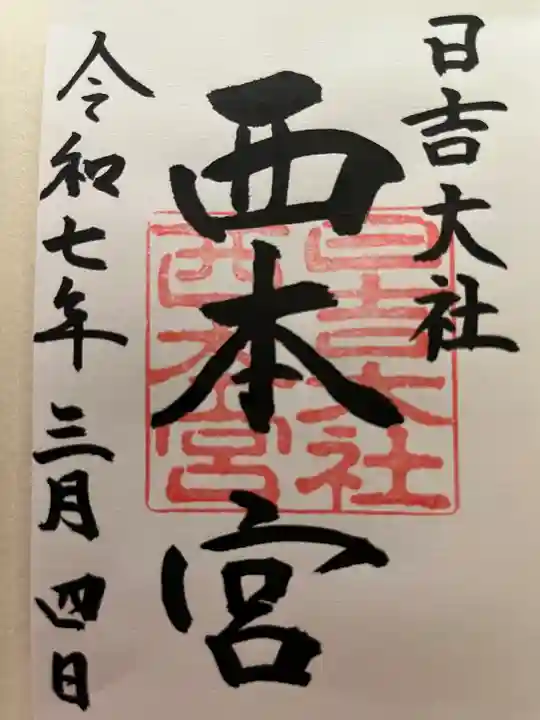 日吉大社
西本宮
令和七年三月四日
日吉大社
西本宮